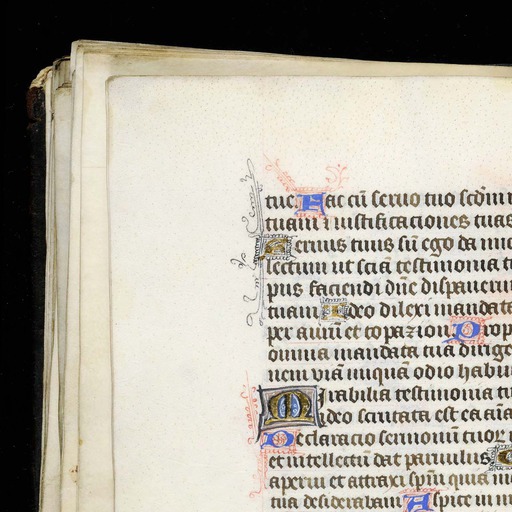 tue. Fac cū seruo tuo scdm m
tuam ⁊ iustificaciones tuas
Seruus tuus sū ego da mic
lectum ut sciā testimonia t
pus faciendi dñe dissipauerūt
tuam Ideo dilexi mandata
per aurū et topazion Prop
omnia mandata tua dirige
nem viā iniquā odio habui
Mirabilia testimonia tu
ideo scrutata est ea aīa
Declaracio sermonū tuoꝝ i
et intellectū dat paruulis
aperui et attraxi spm̄ quia m
tua desiderabam Aspice in m